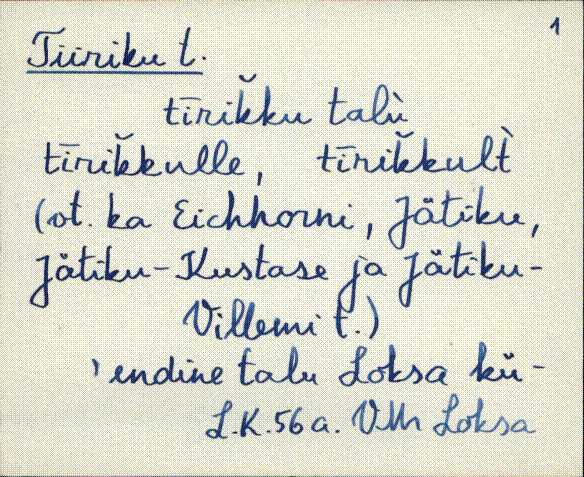 1
Tiiriku t.
tīrik̆ku talù
tīrik̆kulle, tīrik̆kul̀t
(vt. ka Eichhorni, Jätiku,
Jätiku-Kustase ja Jätiku-
Villemi t.)
'endine talu Loksa kü-
L.K. 56 a. VMr Loksa